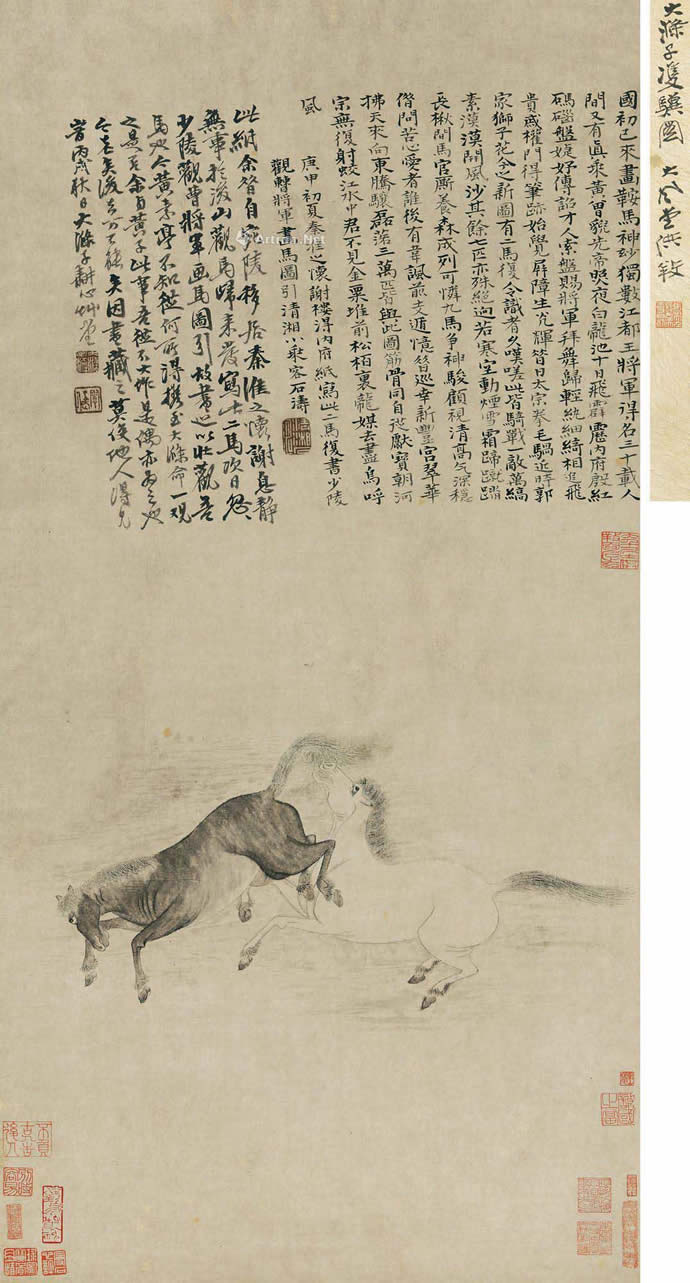 大滌子雙驥圖 大風堂供養
國初已來畫鞍馬神妙獨數江都王將軍得名三十載人
間又有真乘黃曾貌先帝照夜白龍池十日飛霹靂内府殷紅
碼碯盤婕妤傳詔才人索盤賜將軍拜舞歸輕紈細綺相追飛
貴戚權門得筆跡始覺屏障生光輝昔日太宗拳毛騧近時郭
家獅子花今之新圖有二馬復令識者久嘆嗟此皆騎戰一敵萬縞
素漠漠開風沙其餘七匹亦殊絕迥若寒空動煙雪霜蹄蹴踏
長楸間馬官廝養森成列可憐九馬爭神駿顧視清高氣深穩
借問苦心愛者誰後有韋諷前支遁憶昔巡幸新豐宮翠華
拂天來向東騰驤磊落三萬匹皆與此圖筋骨同自從獻寶朝河
宗無復射蛟江水中君不見金粟堆前松柏裏龍媒去盡鳥呼
風 庚申初夏秦淮之懷謝樓得内府紙寫此二馬復書少陵
觀曹將軍畫馬圖引清湘小乘客石濤
此紙余昔自宛陵移居秦淮之懷謝息靜
無事於後山觀馬歸來發寫此二馬次日發
少陵觀曹將軍画馬圖引故書此以壯觀吾
馬也今黃素亭不知從何所得攜至大滌命一观
之是吾余自黃子此事吾從不大作是偶亦為之也
今老矣後去亦不能矣因書藏之莫使他人得見
岢丙戌秋日大滌子耕心艸堂